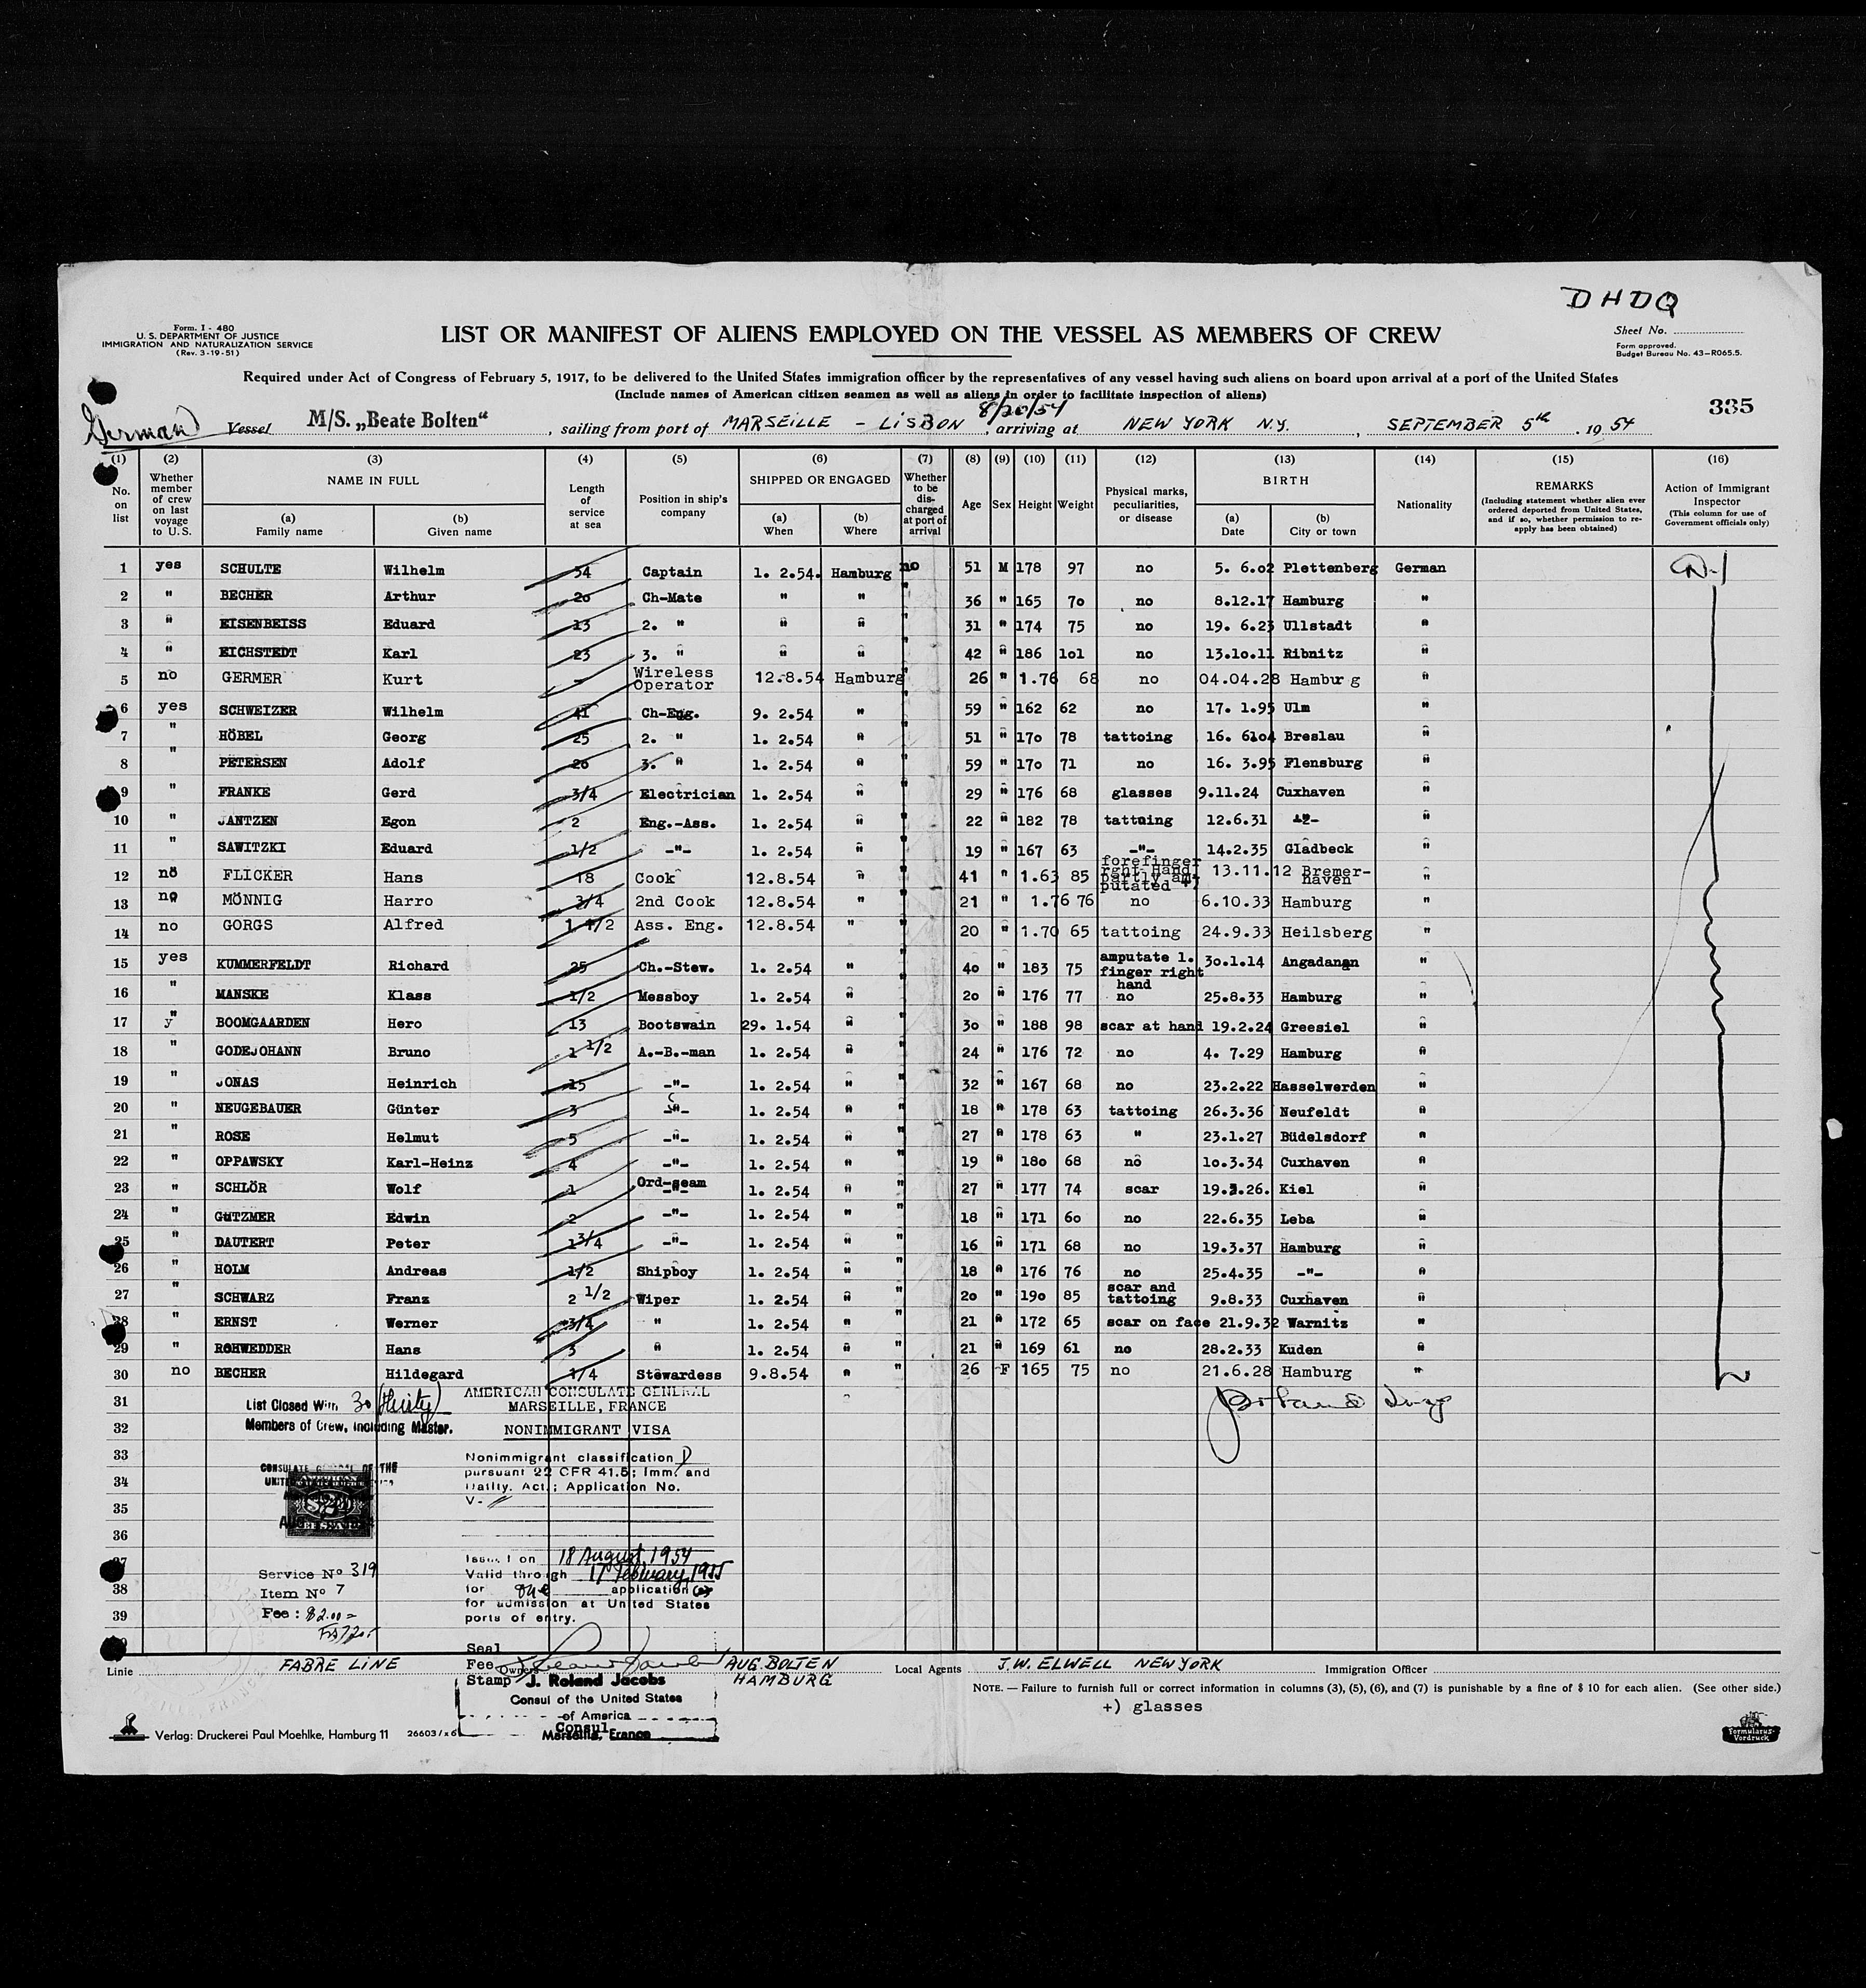 DHDQ
Form. I - 480
U. S. DEPARTMENT OF JUSTICE
IMMIGRATION AND NATURALIZATION SERVICE
(Rev. 3-19-51)
LIST OR MANIFEST OF ALIENS EMPLOYED ON THE VESSEL AS MEMBERS OF CREW
Sheet No.
Form approved.
Budget Bureau No. 43-R065.5.
Required under Act of Congress of February 5, 1917, to be delivered to the United States immigration officer by the representatives of any vessel having such aliens on board upon arrival at a port of the United States
(Include names of American citizen seamen as well as aliens in order to facilitate inspection of aliens)
335
German Vessel M/S. „Beate Bolten“, sailing from port of MARSEILLE - LISBON 8/20/54, arriving at NEW YORK N.Y., SEPTEMBER 5th. 19 54
(1) (2) (3) (4) (5) (6) (7) (8) (9) (10) (11) (12) (13) (14) (15) (16)
No. on list Whether member of crew on last voyage to U.S. NAME IN FULL (a) Family name (b) Given name Length of service at sea Position in ship's company SHIPPED OR ENGAGED (a) When (b) Where Whether to be discharged at port of arrival Age Sex Height Weight Physical marks, peculiarities, or disease BIRTH (a) Date (b) City or town Nationality REMARKS (Including statement whether alien ever ordered deported from United States, and if so, whether permission to re-apply has been obtained) Action of Immigrant Inspector (This column for use of Government officials only)
1 yes SCHULTE Wilhelm 34 Captain 1. 2.54. Hamburg no 51 M 178 97 no 5. 6.02 Plettenberg German D-1
2 " BECHER Arthur 20 Ch-Mate " " " 36 " 165 7o no 8.12.17 Hamburg "
3 " EISENBEISS Eduard 13 2. " " " " 31 " 174 75 no 19. 6.23 Ullstadt "
4 " EICHSTEDT Karl 23 3. " " " " 42 " 186 1o1 no 13.1o.11 Ribnitz "
5 no GERMER Kurt - Wireless Operator 12.8.54 Hamburg " 26 " 1.76 68 no 04.04.28 Hambur g "
6 yes SCHWEIZER Wilhelm 41 Ch-Eng. 9. 2.54 " " 59 " 162 62 no 17. 1.95 Ulm "
7 " HÖBEL Georg 25 2. " 1. 2.54 " " 51 " 17o 78 tattoing 16. 6.04 Breslau "
8 " PETERSEN Adolf 26 3. " 1. 2.54 " " 59 " 17o 71 no 16. 3.95 Flensburg "
9 " FRANKE Gerd 3/4 Electrician 1. 2.54 " " 29 " 176 68 glasses 9.11.24 Cuxhaven "
10 " JANTZEN Egon 2 Eng.-Ass. 1. 2.54 " " 22 " 182 78 tattoing 12.6.31 -"- "
11 " SAWITZKI Eduard 1/2 -"- 1. 2.54 " " 19 " 167 63 -"- 14.2.35 Gladbeck "
12 no FLICKER Hans 18 Cook 12.8.54 " " 41 " 1.63 85 forefinger rght Hand partly am- putated +) 13.11.12 Bremer- haven "
13 no MÖNNIG Harro 3/4 2nd Cook 12.8.54 " " 21 " 1.76 76 no 6.10.33 Hamburg "
14 no GORGS Alfred 1 1/2 Ass. Eng. 12.8.54 " " 20 " 1.70 65 tattoing 24.9.33 Heilsberg "
15 yes KUMMERFELDT Richard 25 Ch.-Stew. 1. 2.54 " " 4o " 183 75 amputate 1. finger right hand 3o.1.14 Angadanan "
16 " MANSKE Klass 1/2 Messboy 1. 2.54 " " 2o " 176 77 no 25.8.33 Hamburg "
17 " BOOMGAARDEN Hero 13 Bootswain 29. 1.54 " " 3o " 188 98 scar at hand 19.2.24 Greesiel "
18 " GODEJOHANN Bruno 1 1/2 A.-B.-man 1. 2.54 " " 24 " 176 72 no 4. 7.29 Hamburg "
19 " JONAS Heinrich 15 -"- 1. 2.54 " " 32 " 167 68 no 23.2.22 Hasselwerden "
20 " NEUGEBAUER Günter 3 -"- 1. 2.54 " " 18 " 178 63 tattoing 26.3.36 Neufeldt "
21 " ROSE Helmut 5 -"- 1. 2.54 " " 27 " 178 63 " 23.1.27 Büdelsdorf "
22 " OPPAWSKY Karl-Heinz 4 -"- 1. 2.54 " " 19 " 18o 68 no 1o.3.34 Cuxhaven "
23 " SCHLÖR Wolf 1 Ord-seam 1. 2.54 " " 27 " 177 74 scar 19.3.26. Kiel "
24 " GÜTZMER Edwin 2 -"- 1. 2.54 " " 18 " 171 6o no 22.6.35 Leba "
25 " DAUTERT Peter 1 3/4 -"- 1. 2.54 " " 16 " 171 68 no 19.3.37 Hamburg "
26 " HOLM Andreas 1/2 Shipboy 1. 2.54 " " 18 " 176 76 no 25.4.35 -"- "
27 " SCHWARZ Franz 2 1/2 Wiper 1. 2.54 " " 2o " 19o 85 scar and tattoing 9.8.33 Cuxhaven "
28 " ERNST Werner 3/4 " 1. 2.54 " " 21 " 172 65 scar on face 21.9.32 Warnitz "
29 " ROHWEDDER Hans 3 " 1. 2.54 " " 21 " 169 61 no 28.2.33 Kuden "
30 no BECHER Hildegard 1/4 Stewardess 9.8.54 " " 26 F 165 75 no 21.6.28 Hamburg "
31
32
33
34
35
36
37
38
39
List Closed With 30 (thirty)
Members of Crew, Including Master.
AMERICAN CONSULATE GENERAL
MARSEILLE, FRANCE
NONIMMIGRANT VISA
Nonimmigrant classification D
pursuant 22 CFR 41.5; Imm. and
Natlty. Act.; Application No.
V-
Issued on 18 August 1954
Valid through 17 February 1955
for one application (s)
for admission at United States
ports of entry.
CONSULATE GENERAL OF THE
Service No 319
Item No 7
Fee : $2.00=
Seal
Fee
Stamp
J. Roland Jacobs
Consul of the United States
of America
Consul
Marseille, France
Linie FABRE LINE Owners AUG. BOLTEN HAMBURG Local Agents J.W. ELWELL NEW YORK Immigration Officer
NOTE. — Failure to furnish full or correct information in columns (3), (5), (6), and (7) is punishable by a fine of $ 10 for each alien. (See other side.)
+) glasses
Verlag: Druckerei Paul Moehlke, Hamburg 11 26603/x6
Formularus-
Vordruck